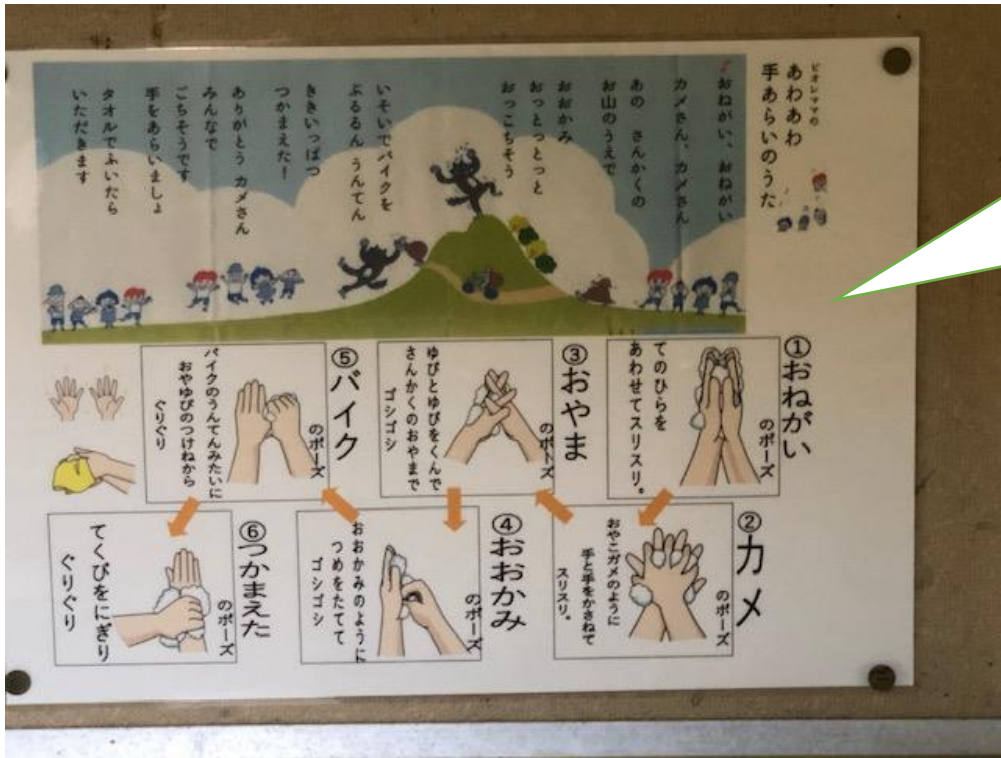 ビオレママの
あわあわ
手あらいのうた
♪おねがい、おねがい
カメさん、カメさん
あの さんかくの
お山のうえで
おおかみ
おっとっとっと
おっこちそう
いそいでバイクを
ぶるるん うんてん
ききいっぱつ
つかまえた！
ありがとう カメさん
みんなで
ごちそうです
手をあらいましょ
タオルでふいたら
いただきます
①おねがい
のポーズ
てのひらを
あわせてスリスリ。
②カメ
のポーズ
おやこガメのように
手と手をかさねて
スリスリ。
③おやま
のポーズ
ゆびとゆびをくんで
さんかくのおやまで
ゴシゴシ
④おおかみ
のポーズ
おおかみのように
つめをたてて
ゴシゴシ
⑤バイク
のポーズ
バイクのうんてんみたいに
おやゆびのつけねから
ぐりぐり
⑥つかまえた
のポーズ
てくびをにぎり
ぐりぐり